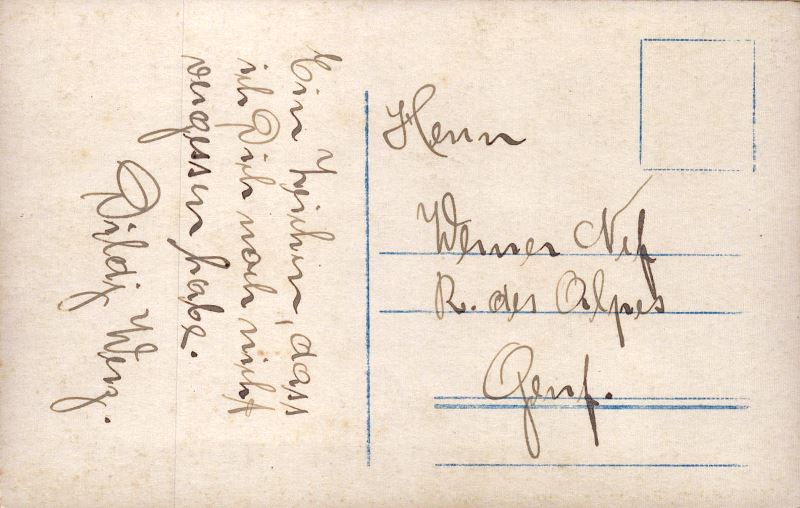 Ein Zeichen, dass
ich Dich noch nicht
vergessen habe.
Dildj Werz.
Herrn
Werner Nef
R. des Alpes
Genf.